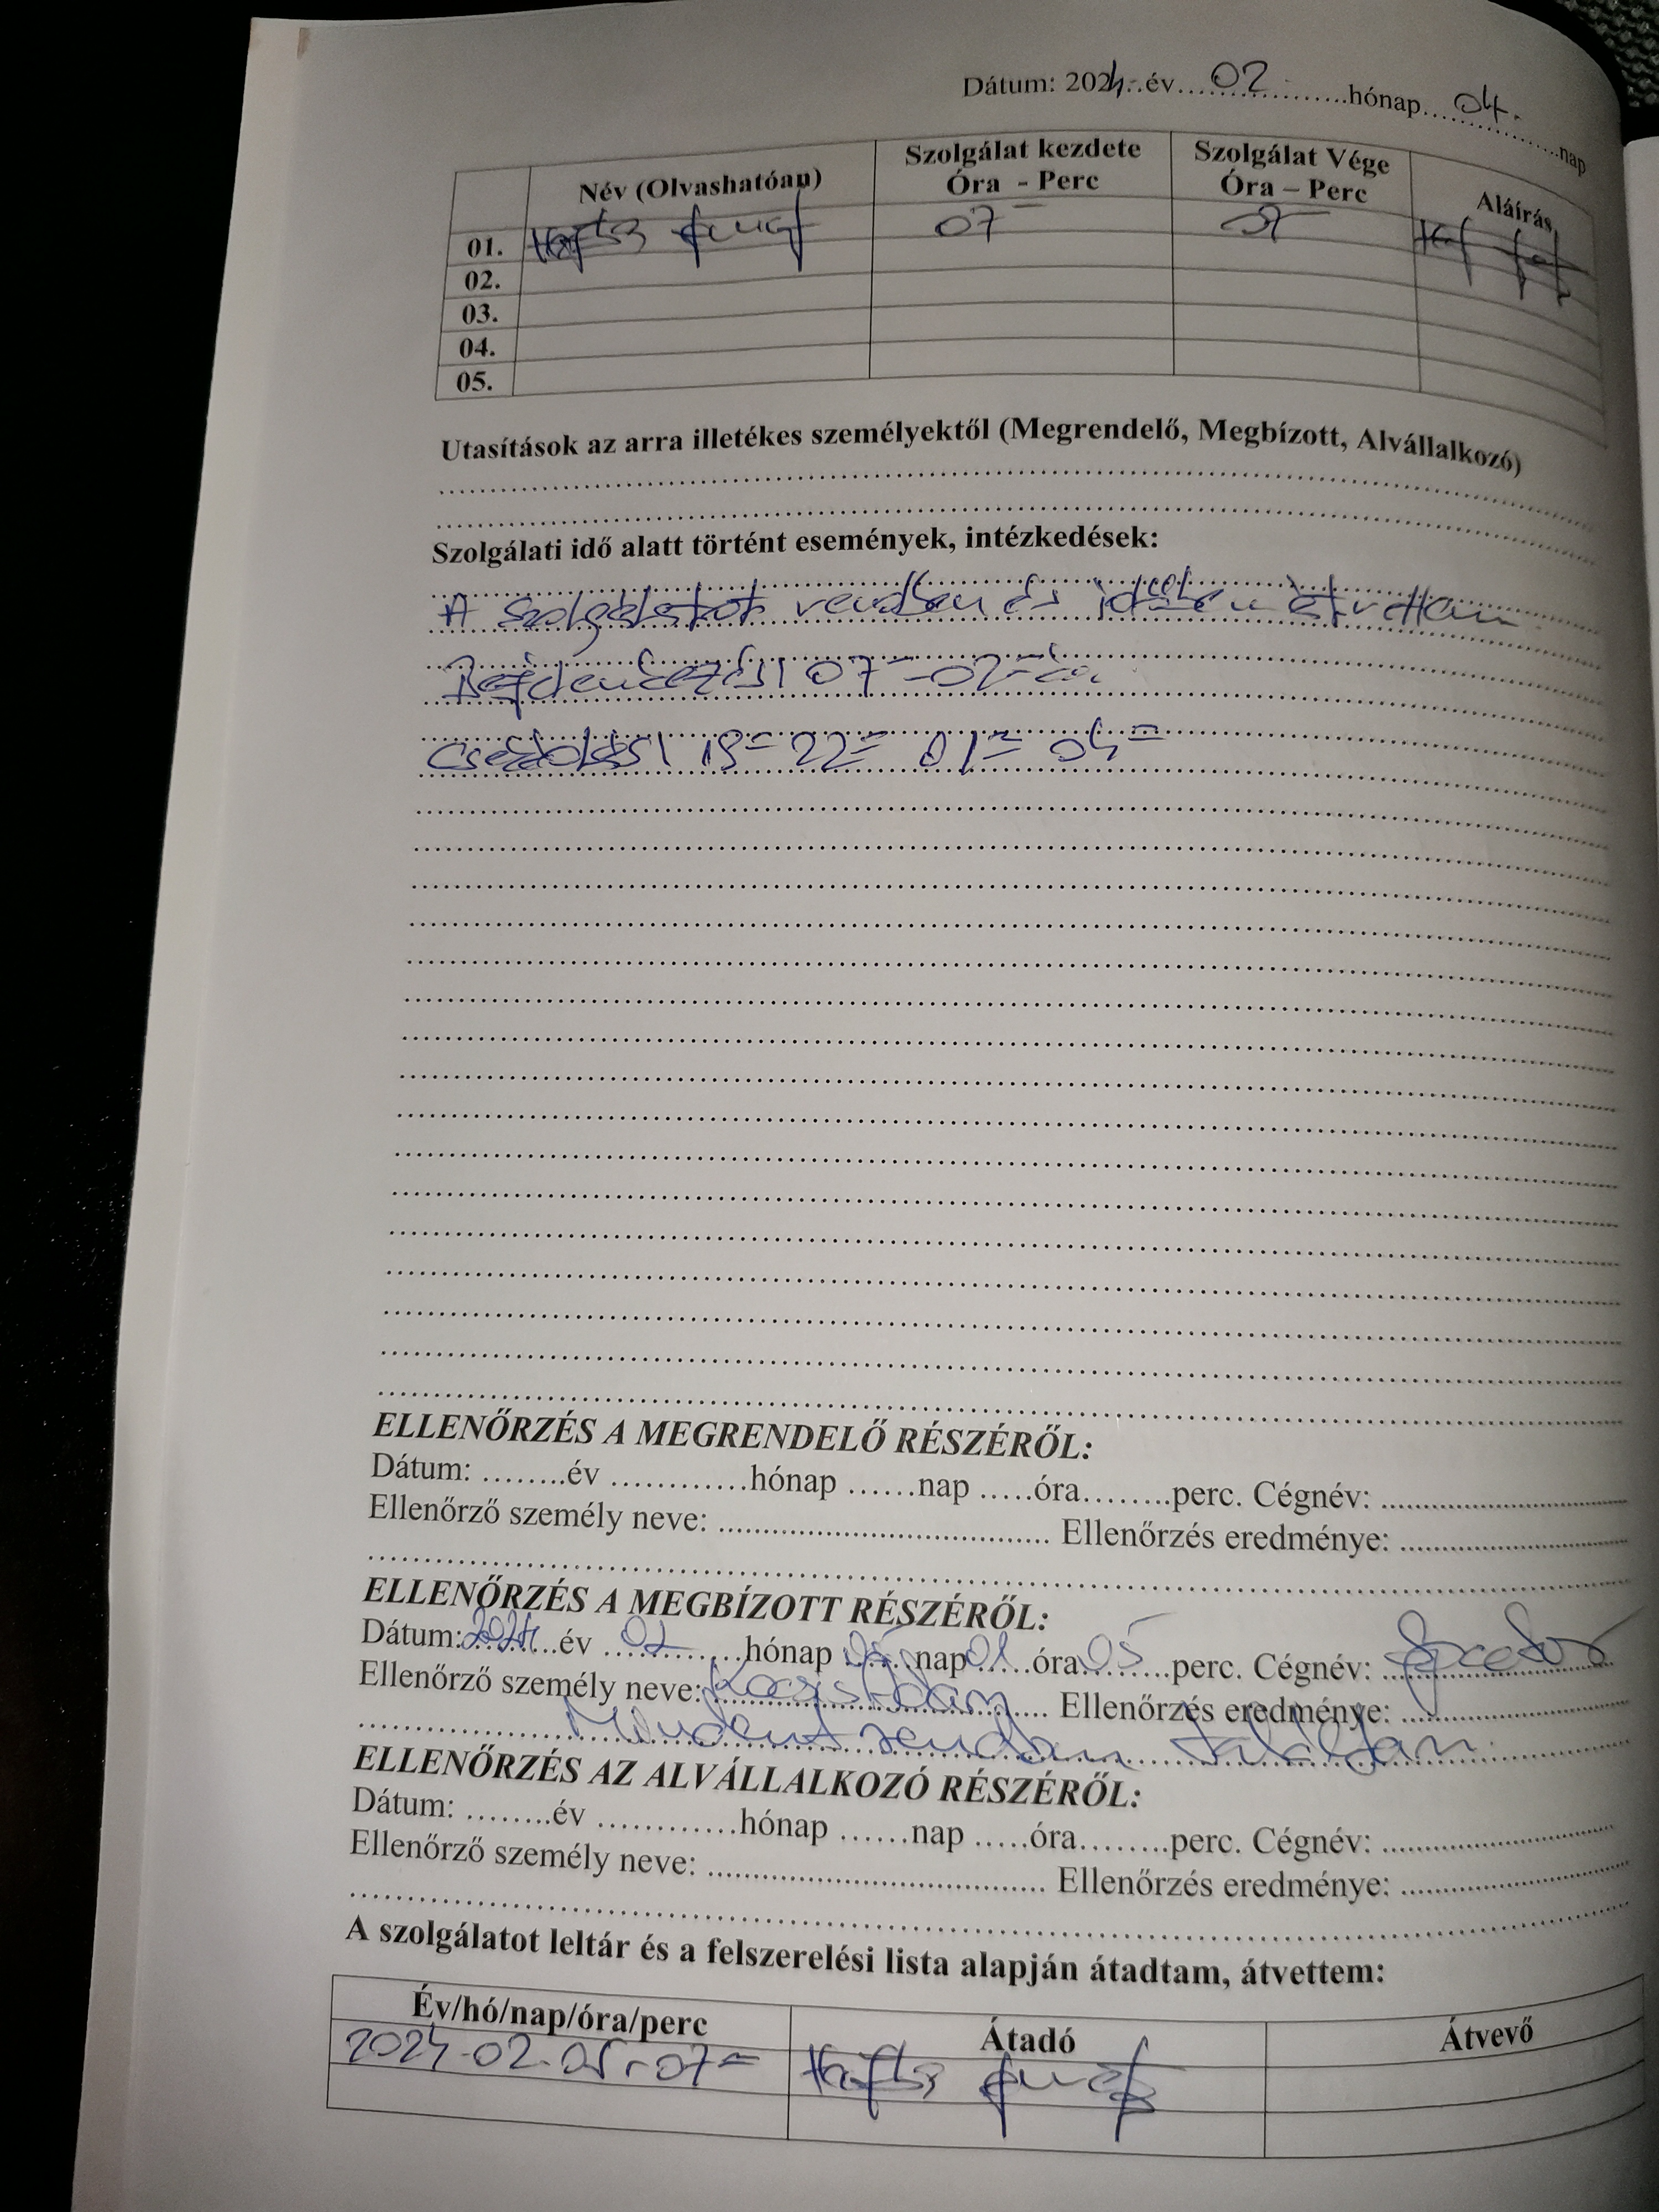 Dátum: 2024. év 02 hónap 04. nap
Név (Olvashatóan) Szolgálat kezdete Óra - Perc Szolgálat Vége Óra – Perc Aláírás
01. 07
02.
03.
04.
05.
Utasítások az arra illetékes személyektől (Megrendelő, Megbízott, Alvállalkozó)
Szolgálati idő alatt történt események, intézkedések:
A szolgálatot rendben és időben átvettem
Bejelentkezés! 07
22 01 04
ELLENŐRZÉS A MEGRENDELŐ RÉSZÉRŐL:
Dátum: ........év ............hónap ......nap .....óra........perc. Cégnév: ..............................
Ellenőrző személy neve: ...................................... Ellenőrzés eredménye: ..............................
ELLENŐRZÉS A MEGBÍZOTT RÉSZÉRŐL:
Dátum: 2024 év 02 hónap 05 nap 01 óra 05 perc. Cégnév:
Ellenőrző személy neve: Kocsis Ádám Ellenőrzés eredménye:
Mindent rendben találtam
ELLENŐRZÉS AZ ALVÁLLALKOZÓ RÉSZÉRŐL:
Dátum: ........év ............hónap ......nap .....óra........perc. Cégnév: ..............................
Ellenőrző személy neve: ...................................... Ellenőrzés eredménye: ..............................
A szolgálatot leltár és a felszerelési lista alapján átadtam, átvettem:
Év/hó/nap/óra/perc Átadó Átvevő
2024-02-05. 07